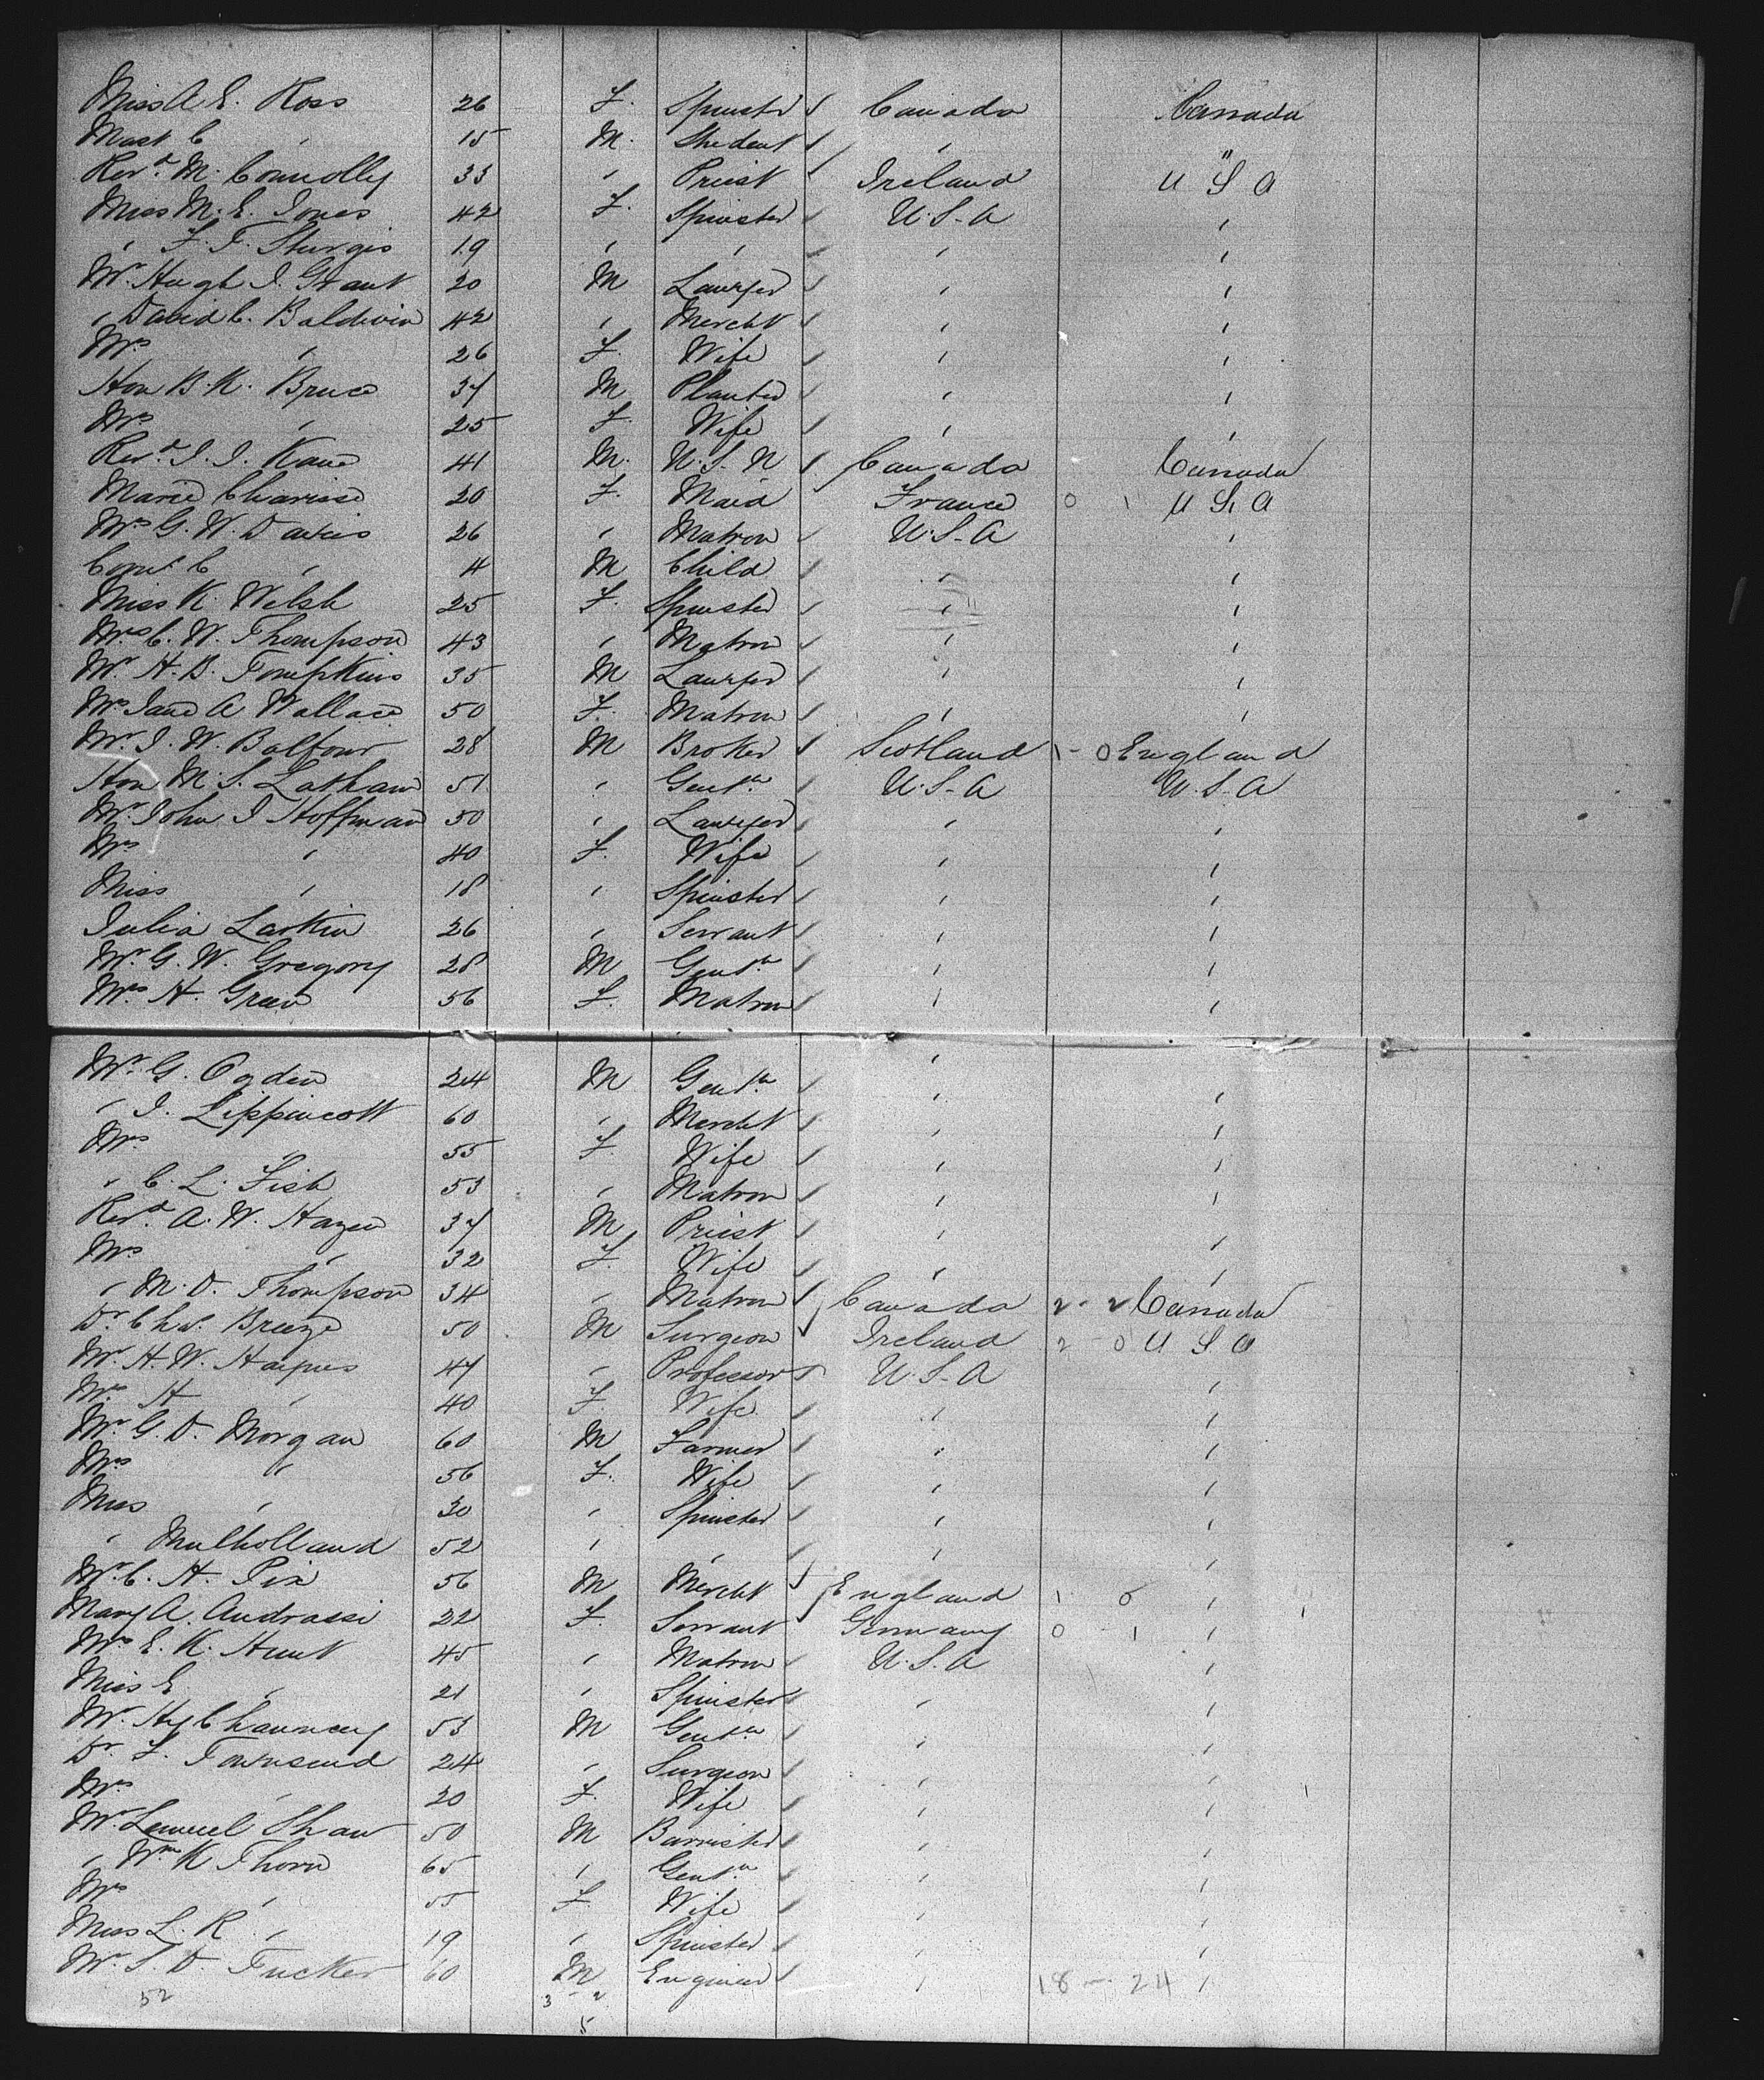 Miss A. E. Ross 26 F. Spinster Canada Canada
Mast C " 15 M. Student " "
Revd. M. Connolly 33 " Priest Ireland U S A
Miss M. E. Jones 42 F. Spinster U.S.A "
" F. T. Sturgis 19 " " " "
Mr. Hugh J. Grant 20 M Lawyer " "
" David C. Baldwin 42 " Mercht " "
Mrs " 26 F. Wife " "
Hon B. K. Bruce 37 M Planter " "
Mrs " 25 F. Wife " "
Revd. J. J. Kane 41 M. U.S.N Canada Canada
Marie Charisse 20 F. Maid France 0 1 U S A
Mrs G. W. Davies 26 " Matron U.S.A "
C " 4 M Child " "
Miss K. Welsh 25 F. Spinster " "
Mrs C. W. Thompson 43 " Matron " "
Mr. H. B. Tompkins 35 M Lawyer " "
Mrs Jane A Wallace 50 F. Matron " "
Mr. J. W. Balfour 28 M Broker Scotland 1 - 0 England
Hon M. S. Latham 51 " Gentn U.S.A U.S.A
Mr. John J Hoffman 50 " Lawyer " "
Mrs " 40 F. Wife " "
Miss " 18 " Spinster " "
Julia Larkin 26 " Servant " "
Mr. G. W. Gregory 28 M Gentn " "
Mrs H. Green 56 F. Matron " "
Mr. G. Ogden 24 M Gentn " "
" J. Lippincott 60 " Mercht " "
Mrs " 55 F Wife " "
" C. L. Fish 53 " Matron " "
Revd. A. W. Hazen 37 M Priest " "
Mrs " 32 F. Wife " "
" M. D. Thompson 34 " Matron Canada 2 - 2 Canada
Dr. Chs. Breeze 50 M Surgeon Ireland 2 - 0 U S A
Mr. H. W. Haynes 47 " Professor U.S.A "
Mrs H " 40 F. Wife " "
Mr. G. D. Morgan 60 M Farmer " "
Mrs " 56 F. Wife " "
Miss " 30 " Spinster " "
" Mulholland 52 " " " "
Mr. C. H. Pix 56 M Mercht England 1 0 "
Mary A. Andrassi 22 F. Servant Germany 0 - 1 "
Mrs E. K. Hunt 45 " Matron U.S.A "
Miss E " 21 " Spinster " "
Mr. Hy Chauncey 53 M Gentn " "
Dr. F. Townsend 24 " Surgeon " "
Mrs " 20 F. Wife " "
Mr. Lemuel Shaw 50 M Barrister " "
" Wm K Thorn 65 " Gentn " "
Mrs " 55 F. Wife " "
Miss L. K " 19 " Spinster " "
Mr. S. D. Tucker 60 M Engineer " 18 - 24 "
52 3 - 2
5